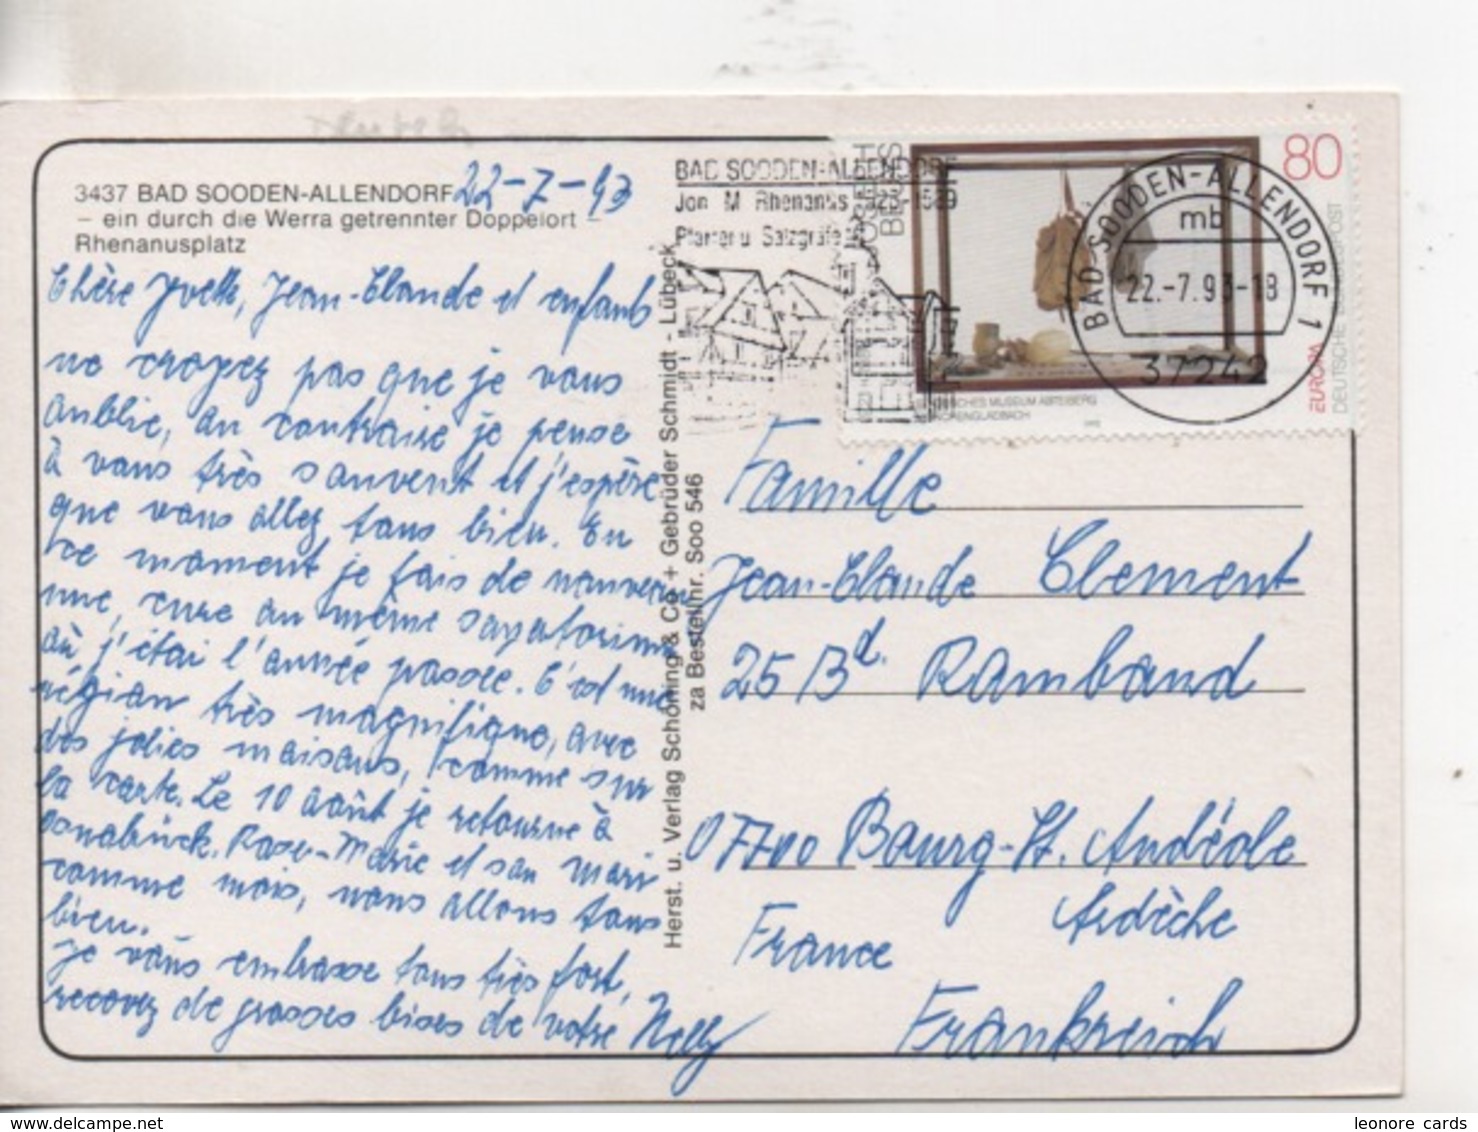 3437 BAD SOODEN-ALLENDORF 22-7-93
– ein durch die Werra getrennter Doppelort –
Rhenanusplatz
Chère Yvette, Jean-Claude et enfants
ne croyez pas que je vous
oublie, au contraire je pense
à vous très souvent et j'espère
que vous allez tous bien. En
ce moment je fais de nouveau
une, cure au même sanatorium
où j'étai l'année passée. C'est une
région très magnifique, avec
des jolies maisons, comme sur
la carte. Le 10 août je retourne à
Osnabrück. Rose-Marie et son mari
comme moi, nous allons tous
bien.
Je vous embrasse tous très fort,
recevez de grosses bises de votre Nelly
Herst. u. Verlag Schöning & Co + Gebrüder Schmidt - Lübeck
za Bestellnr. Soo 546
BAD SOODEN-ALLENDORF
Joh M Rhenanus 1528-1589
Pfarrer u Salzgräfe
JOSEPH
BEUYS
80
EUROPA
DEUTSCHE BUNDESPOST
MUSEUM ABTEIBERG
MÖNCHENGLADBACH
BAD SOODEN-ALLENDORF 1
mb
22.-7.93-18
37242
Famille
Jean-Claude Clement
25 Bd. Rambaud
07700 Bourg-St. Andéole
Ardèche
France
Frankreich
leonore cards